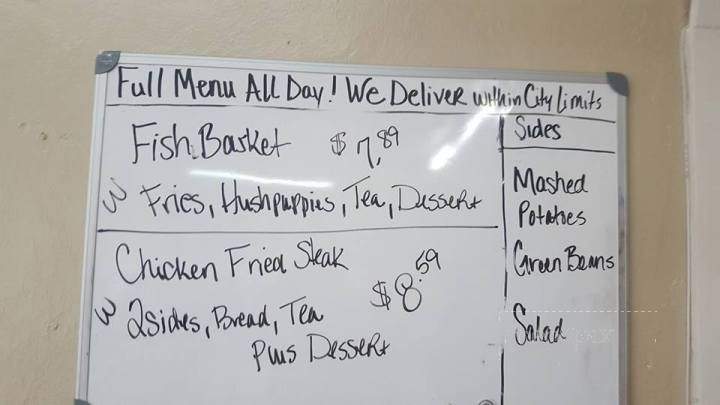 Full Menu All Day! We Deliver within City Limits
Fish Basket $7.89
W Fries, Hushpuppies, Tea, Dessert
Chicken Fried Steak
$8.59
W 2 Sides, Bread, Tea
Plus Dessert
Sides
Mashed
Potatoes
Green Beans
Salad